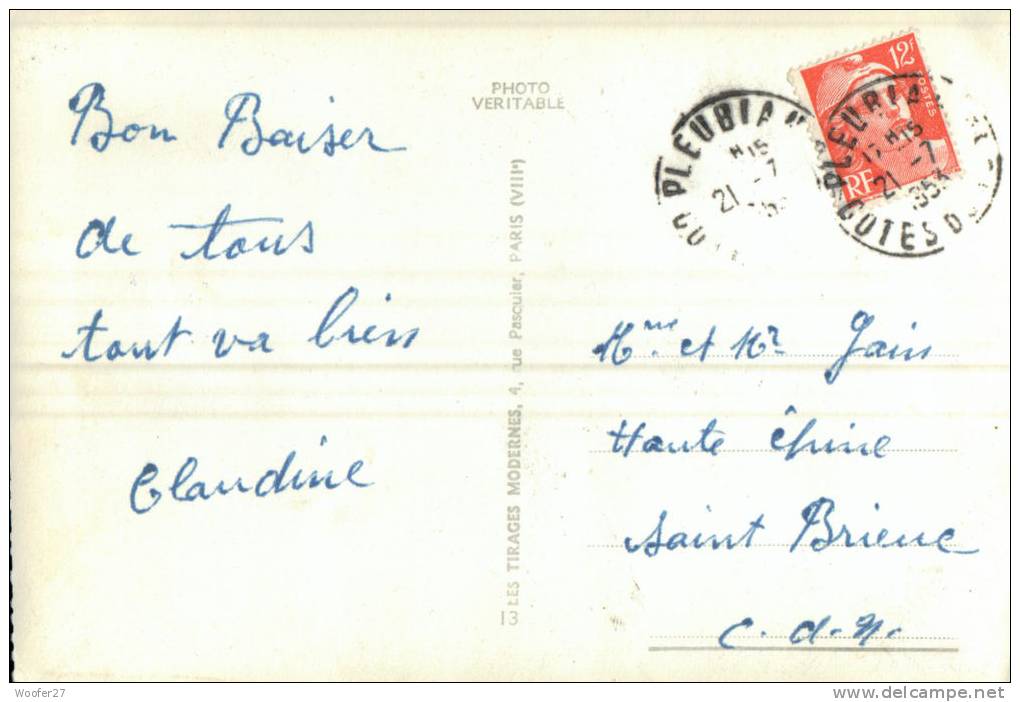 Bon Baiser
de tous
tout va bien
Claudine
PHOTO
VERITABLE
13 LES TIRAGES MODERNES, 4, rue Pasquier, PARIS (VIIIe)
12f
POSTES
RF
PLEUBIAN
H15
21 -7
PLEUBIAN
17 H15
21 -7
1953
COTES D
Mme et Mr Jain
Haute épine
Saint Brieuc
C.d.N.
Woofer27
delcampe.net